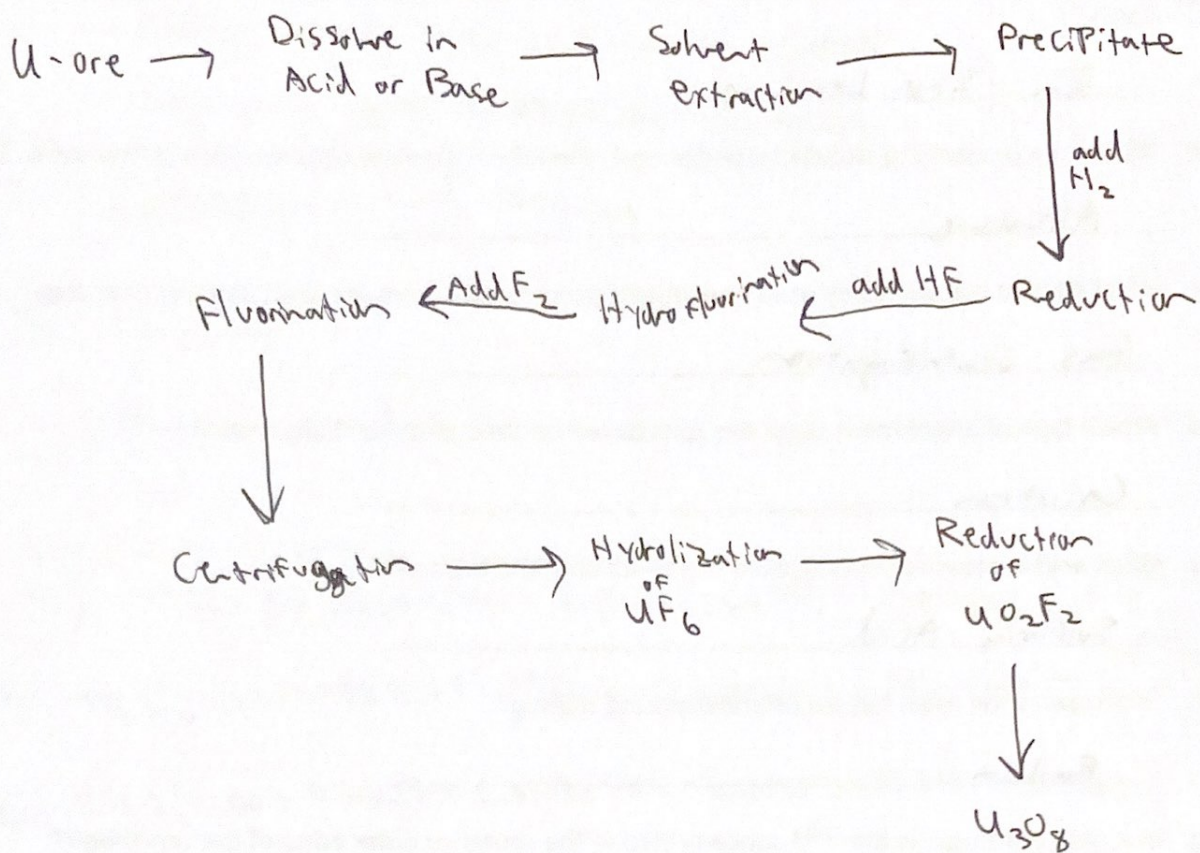 U-ore
Dissolve in
Acid or Base
Solvent
extraction
Precipitate
add
H₂
Reduction
add HF
Hydrofluorination
Add F₂
Fluorination
Centrifugation
Hydrolization
of
UF₆
Reduction
of
UO₂F₂
U₃O₈